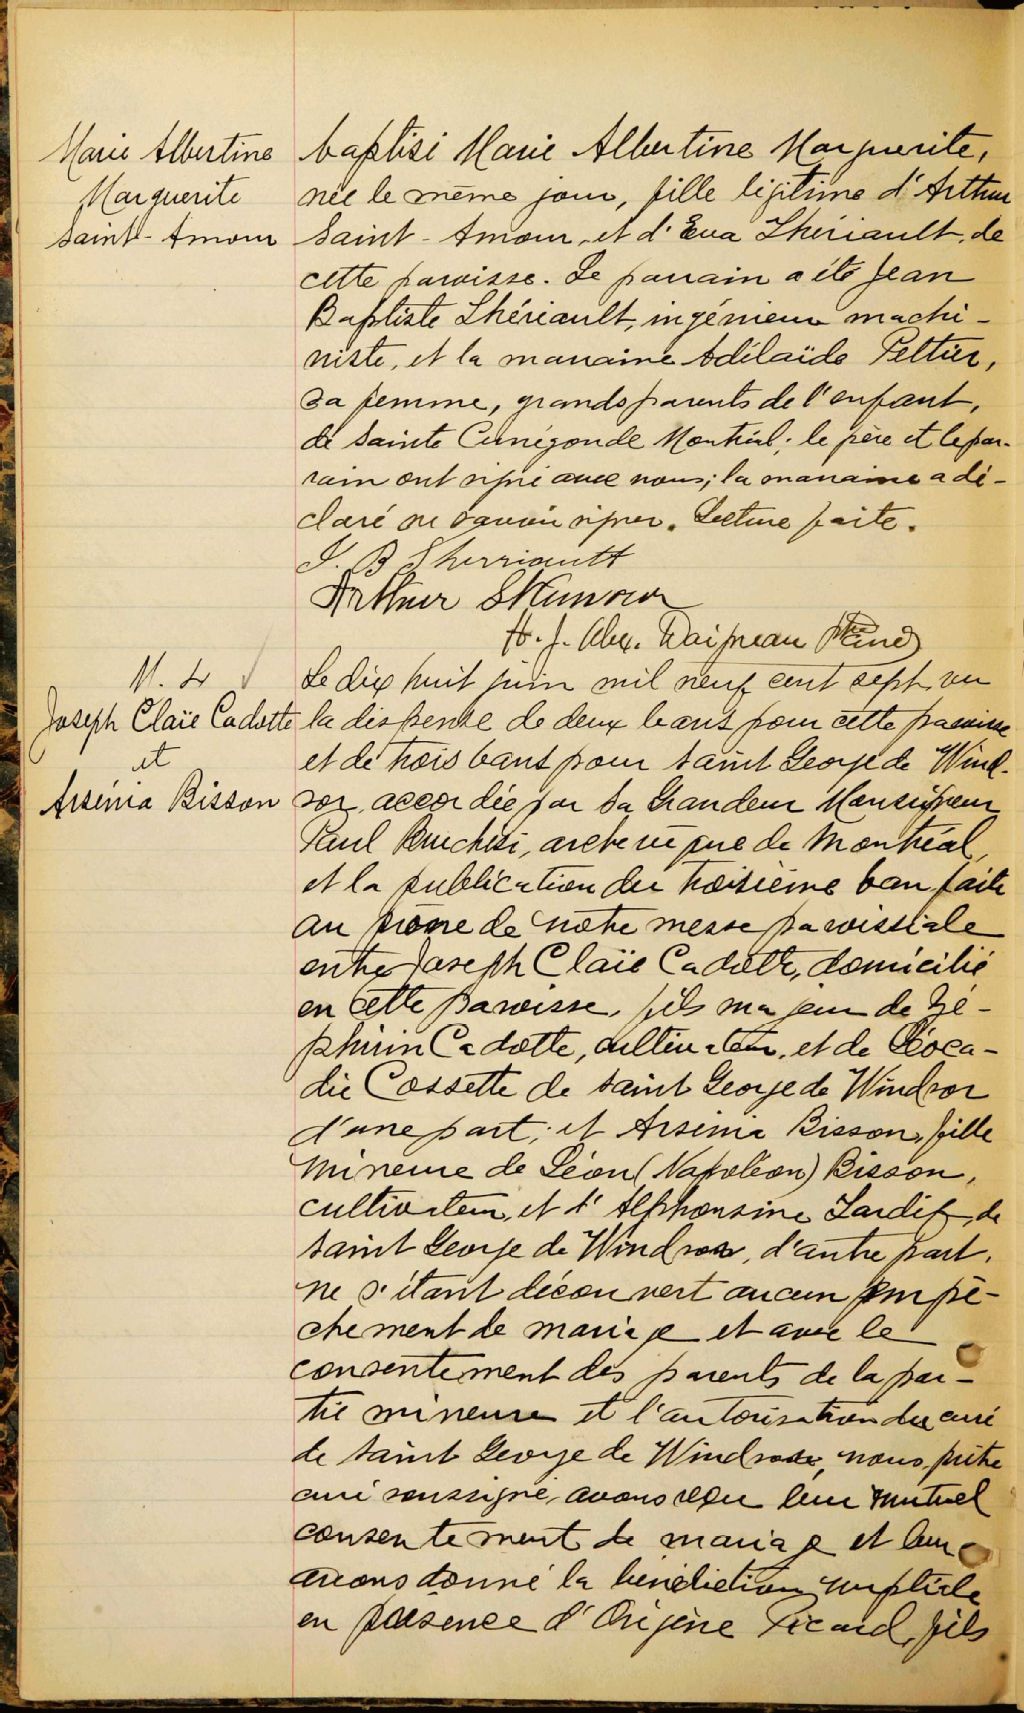 Marie Albertine
Marguerite
Saint-Amour
baptisé Marie Albertine Marguerite,
née le même jour, fille légitime d'Arthur
Saint-Amour, et d'Eva Lhériault, de
cette paroisse. Le parrain a été Jean
Baptiste Lhériault, ingénieur machi-
niste, et la marraine Adélaïde Peltier,
sa femme, grands parents de l'enfant,
de Sainte Cunégonde Montréal; le père et le par-
rain ont signé avec nous; la marraine a dé-
claré ne savoir signer. Lecture faite.
J. B Lherriault
Arthur St Amour
H. J. Alex. Ptre Curé
M. 4
Joseph Claïe Cadotte
et
Arsénia Bisson
Le dix huit juin mil neuf cent sept, vu
la dispense de deux bans pour cette paroisse
et de trois bans pour Saint George de Wind-
sor, accordée par Sa Grandeur Monseigneur
Paul Bruchési, archevêque de Montréal,
et la publication du troisième ban faite
au prône de notre messe paroissiale
entre Joseph Claïe Cadotte, domicilié
en cette paroisse, fils majeur de Zé-
phirin Cadotte, cultivateur, et de Léoca-
die Cossette de Saint George de Windsor
d'une part; et Arsénia Bisson, fille
mineure de Léon (Napoléon) Bisson,
cultivateur, et d'Alphonsine Lardif, de
Saint George de Windsor, d'autre part,
ne s'étant découvert aucun empê-
chement de mariage et avec le
consentement des parents de la par-
tie mineure et l'autorisation du curé
de Saint George de Windsor, nous, prêtre
curé soussigné, avons reçu leur mutuel
consentement de mariage et leur
avons donné la bénédiction nuptiale
en présence d'Origène Picard, fils